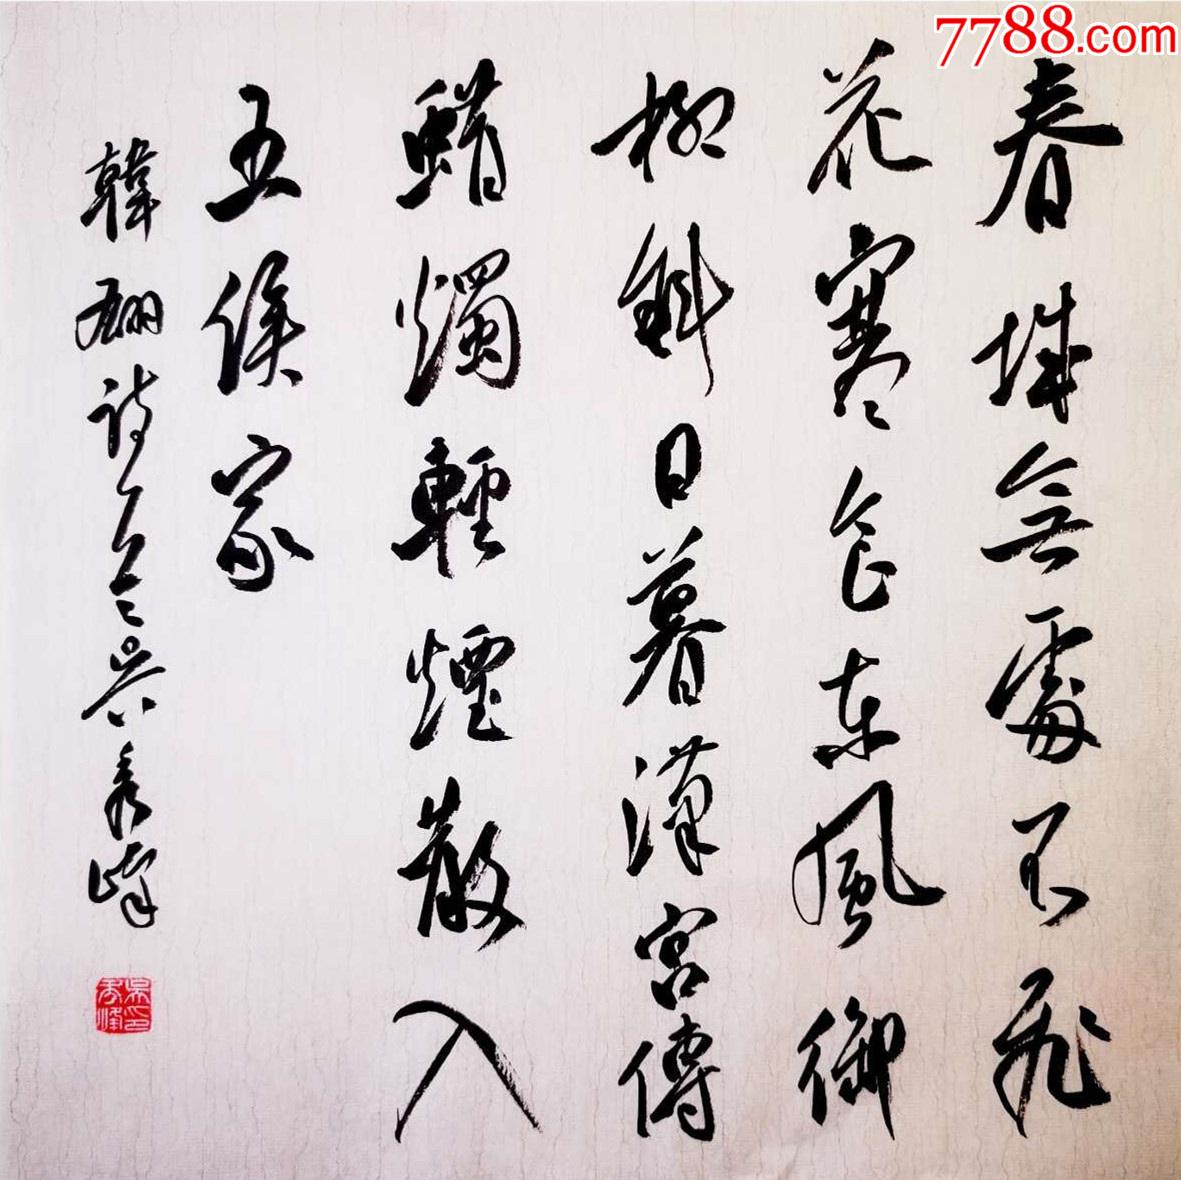 7788.com
春城無處不飛
花寒食東風御
柳斜日暮漢宮傳
蜡燭輕煙散入
五侯家
韓翃詩 吴秀峰
吴印秀峰